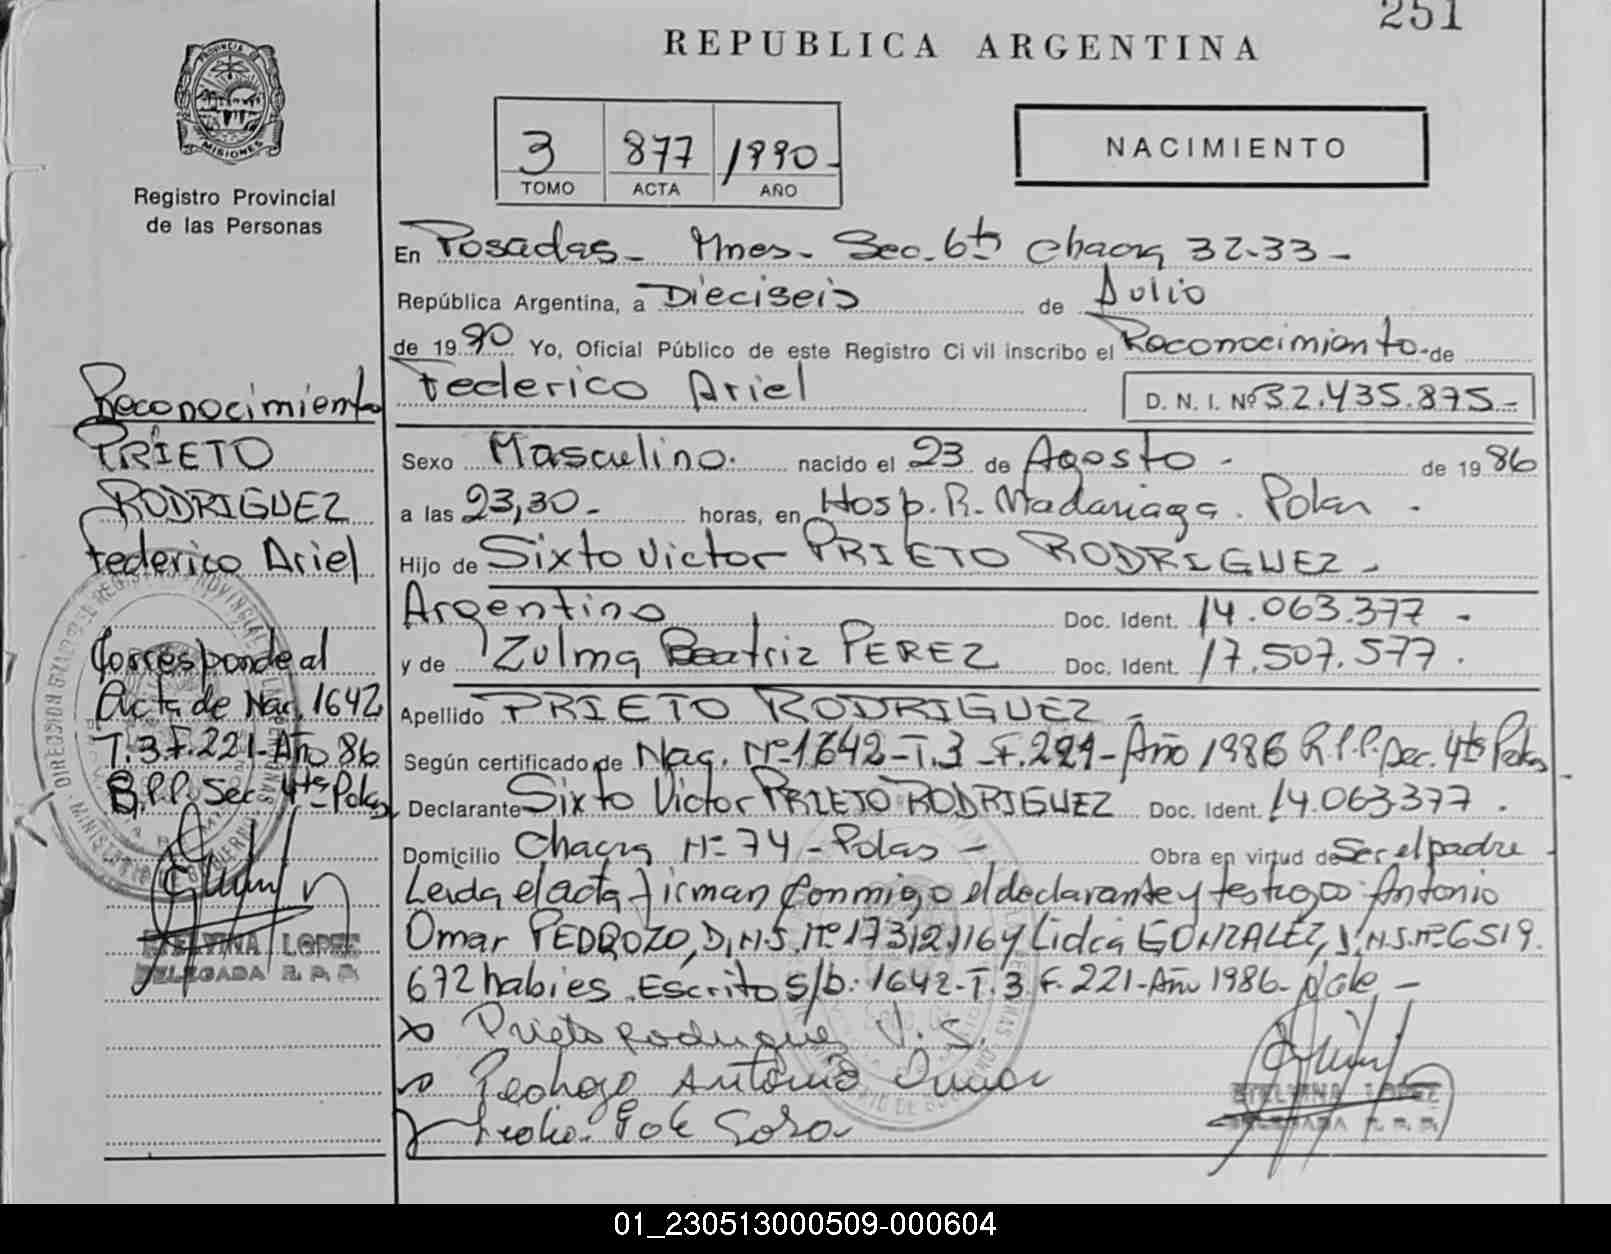 251
REPUBLICA ARGENTINA
PROVINCIA DE
MISIONES
Registro Provincial
de las Personas
3 877 1990-
TOMO ACTA AÑO
NACIMIENTO
En Posadas- Mnes- Sec. 6ta Chacra 32-33-
República Argentina, a Dieciseis de Julio
de 1990 Yo, Oficial Público de este Registro Civil inscribo el Reconocimiento de
Federico Ariel D. N. I. Nº 32.435.875-
Sexo Masculino. nacido el 23 de Agosto - de 1986
a las 23,30- horas, en Hosp. R. Madariaga. Pdas -
Hijo de Sixto Victor PRIETO RODRIGUEZ -
Argentino Doc. Ident. 14.063.377 -
y de Zulma Beatriz PEREZ Doc. Ident. 17.507.577.
Apellido PRIETO RODRIGUEZ -
Según certificado de Nac. Nº 1642-T.3-F.221-Año 1986 R.P.P. Sec. 4ta Pdas
Declarante Sixto Victor PRIETO RODRIGUEZ Doc. Ident. 14.063.377.
Domicilio Chacra Nº 74 - Pdas - Obra en virtud de Ser el padre
Leida el acta firman conmigo el declarante y testigos: Antonio
Omar PEDROZO, D.N.I. Nº 17.312.116 y Lidia GONZALEZ, D.N.I. Nº 6519.
672 habies. Escrito s/b. 1642-T.3 F.221-Año 1986- Vale -
x Prieto Rodriguez V. S.
Antonio Omar
Sosa
STELVINA LOPEZ
DELEGADA R. P. P.
Reconocimiento
PRIETO
RODRIGUEZ
Federico Ariel
Corresponde al
Acta de Nac. 1642
T.3 F.221-Año 86
R.P.P. Sec. 4ta Pdas
STELVINA LOPEZ
DELEGADA R. P. P.
01_230513000509-000604